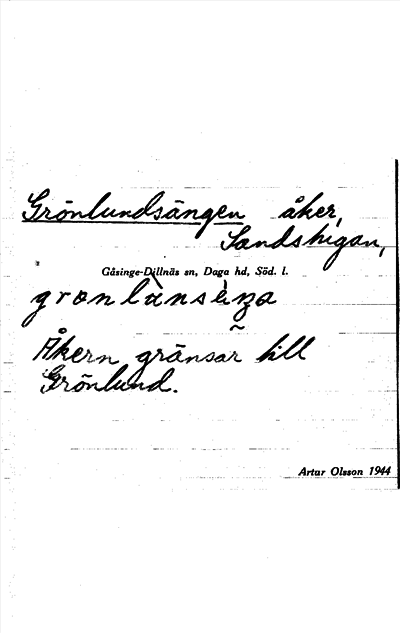 Grönlundsängen åker,
Sandstugan,
Gåsinge-Dillnäs sn, Daga hd, Söd. l.
Åkern gränsar till
Grönlund.
Artur Olsson 1944